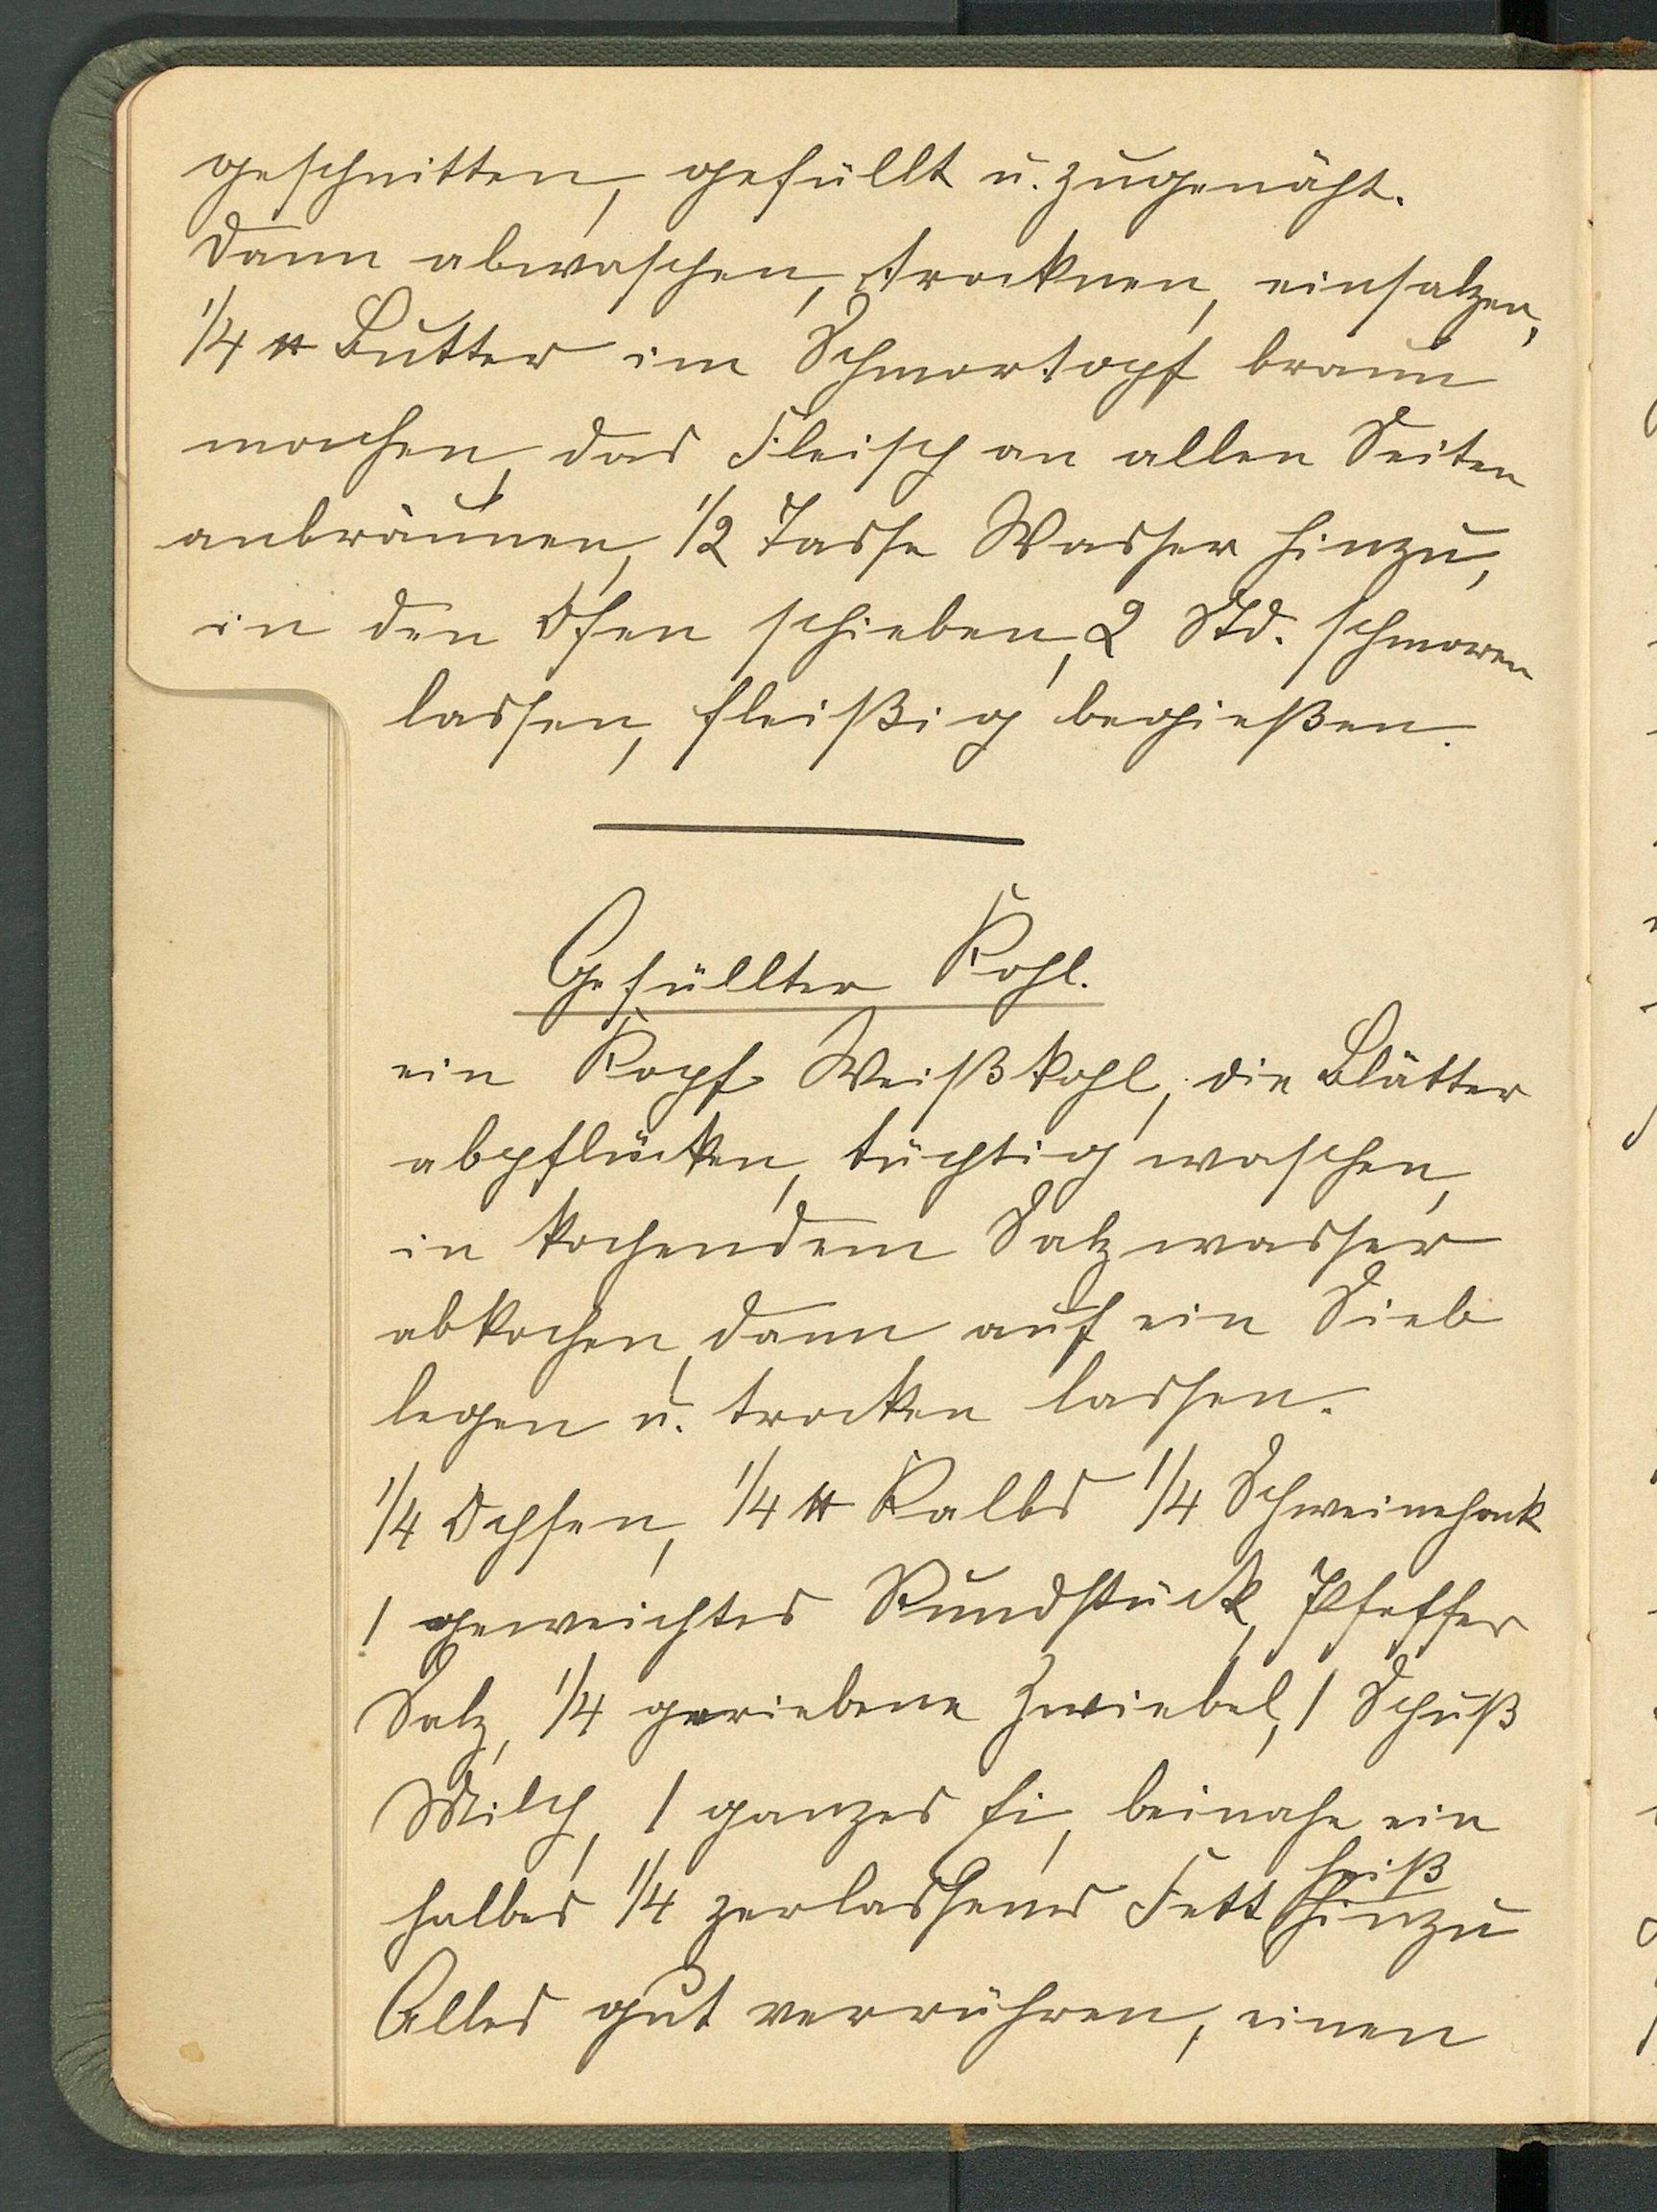 geschnitten, gefüllt u. zugenäht.
Dann abwaschen, trocknen, einsalzen,
1/4 ℔ Butter im Schmortopf braun
machen, das Fleisch an allen Seiten
anbräunen, 1/2 Tasse Wasser hinzu,
in den Ofen schieben, 2 Std. schmoren
lassen, fleißig begießen.
Gefüllter Kohl.
ein Kopf Weißkohl, die Blätter
abpflücken, tüchtig waschen,
in kochendem Salzwasser
abkochen, dann auf ein Sieb
legen u. trocken lassen.
1/4 Ochsen, 1/4 ℔ Kalbs 1/4 Schweinehack
1 geweichtes Rundstück, Pfeffer
Salz, 1/4 geriebene Zwiebel, 1 Schuß
Milch, 1 ganzes Ei, beinahe ein
heiß
halbes 1/4 zerlassenes Fett hinzu
Alles gut verrühren, einen